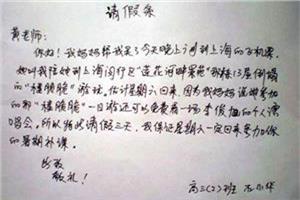 请假条
黄老师:
你好!我妈妈帮我买了今天晚上到上海的飞机票,
她叫我陪她到上海闵行区“莲花河畔景苑”那栋13层倒塌
的“楼脆脆”游玩,估计星期六回来。因为我妈妈说参加
的那“楼脆脆”一日游还可以免费看一场李俊的个人演
唱会,所以特此请假三天,我保证星期六一定回来参加你
的暑期补课。
此致
敬礼!
高三(2)班 小华